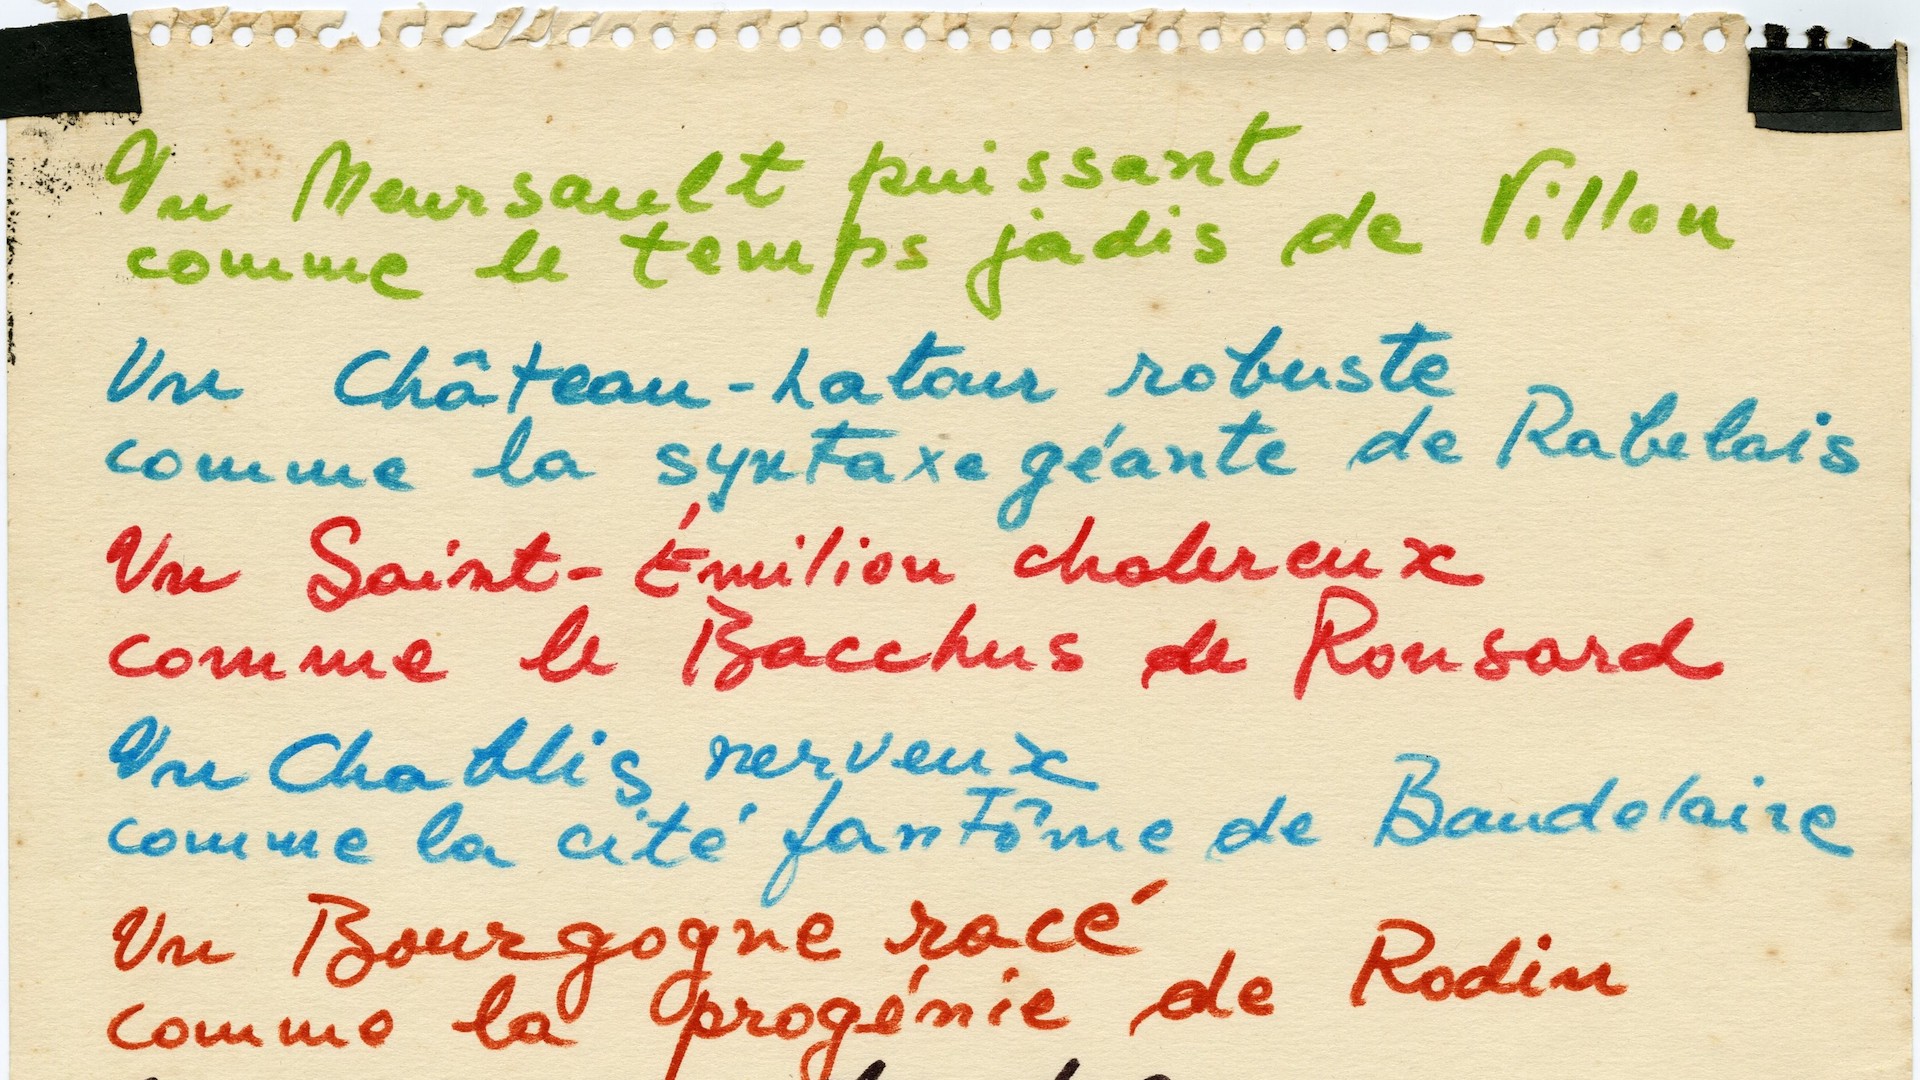 Un Meursault puissant
comme le temps jadis de Villon
Un Château-Latour robuste
comme la syntaxe géante de Rabelais
Un Saint-Émilion chalereux
comme le Bacchus de Ronsard
Un Chablis nerveux
comme la cité fantôme de Baudelaire
Un Bourgogne racé
comme la progénie de Rodin